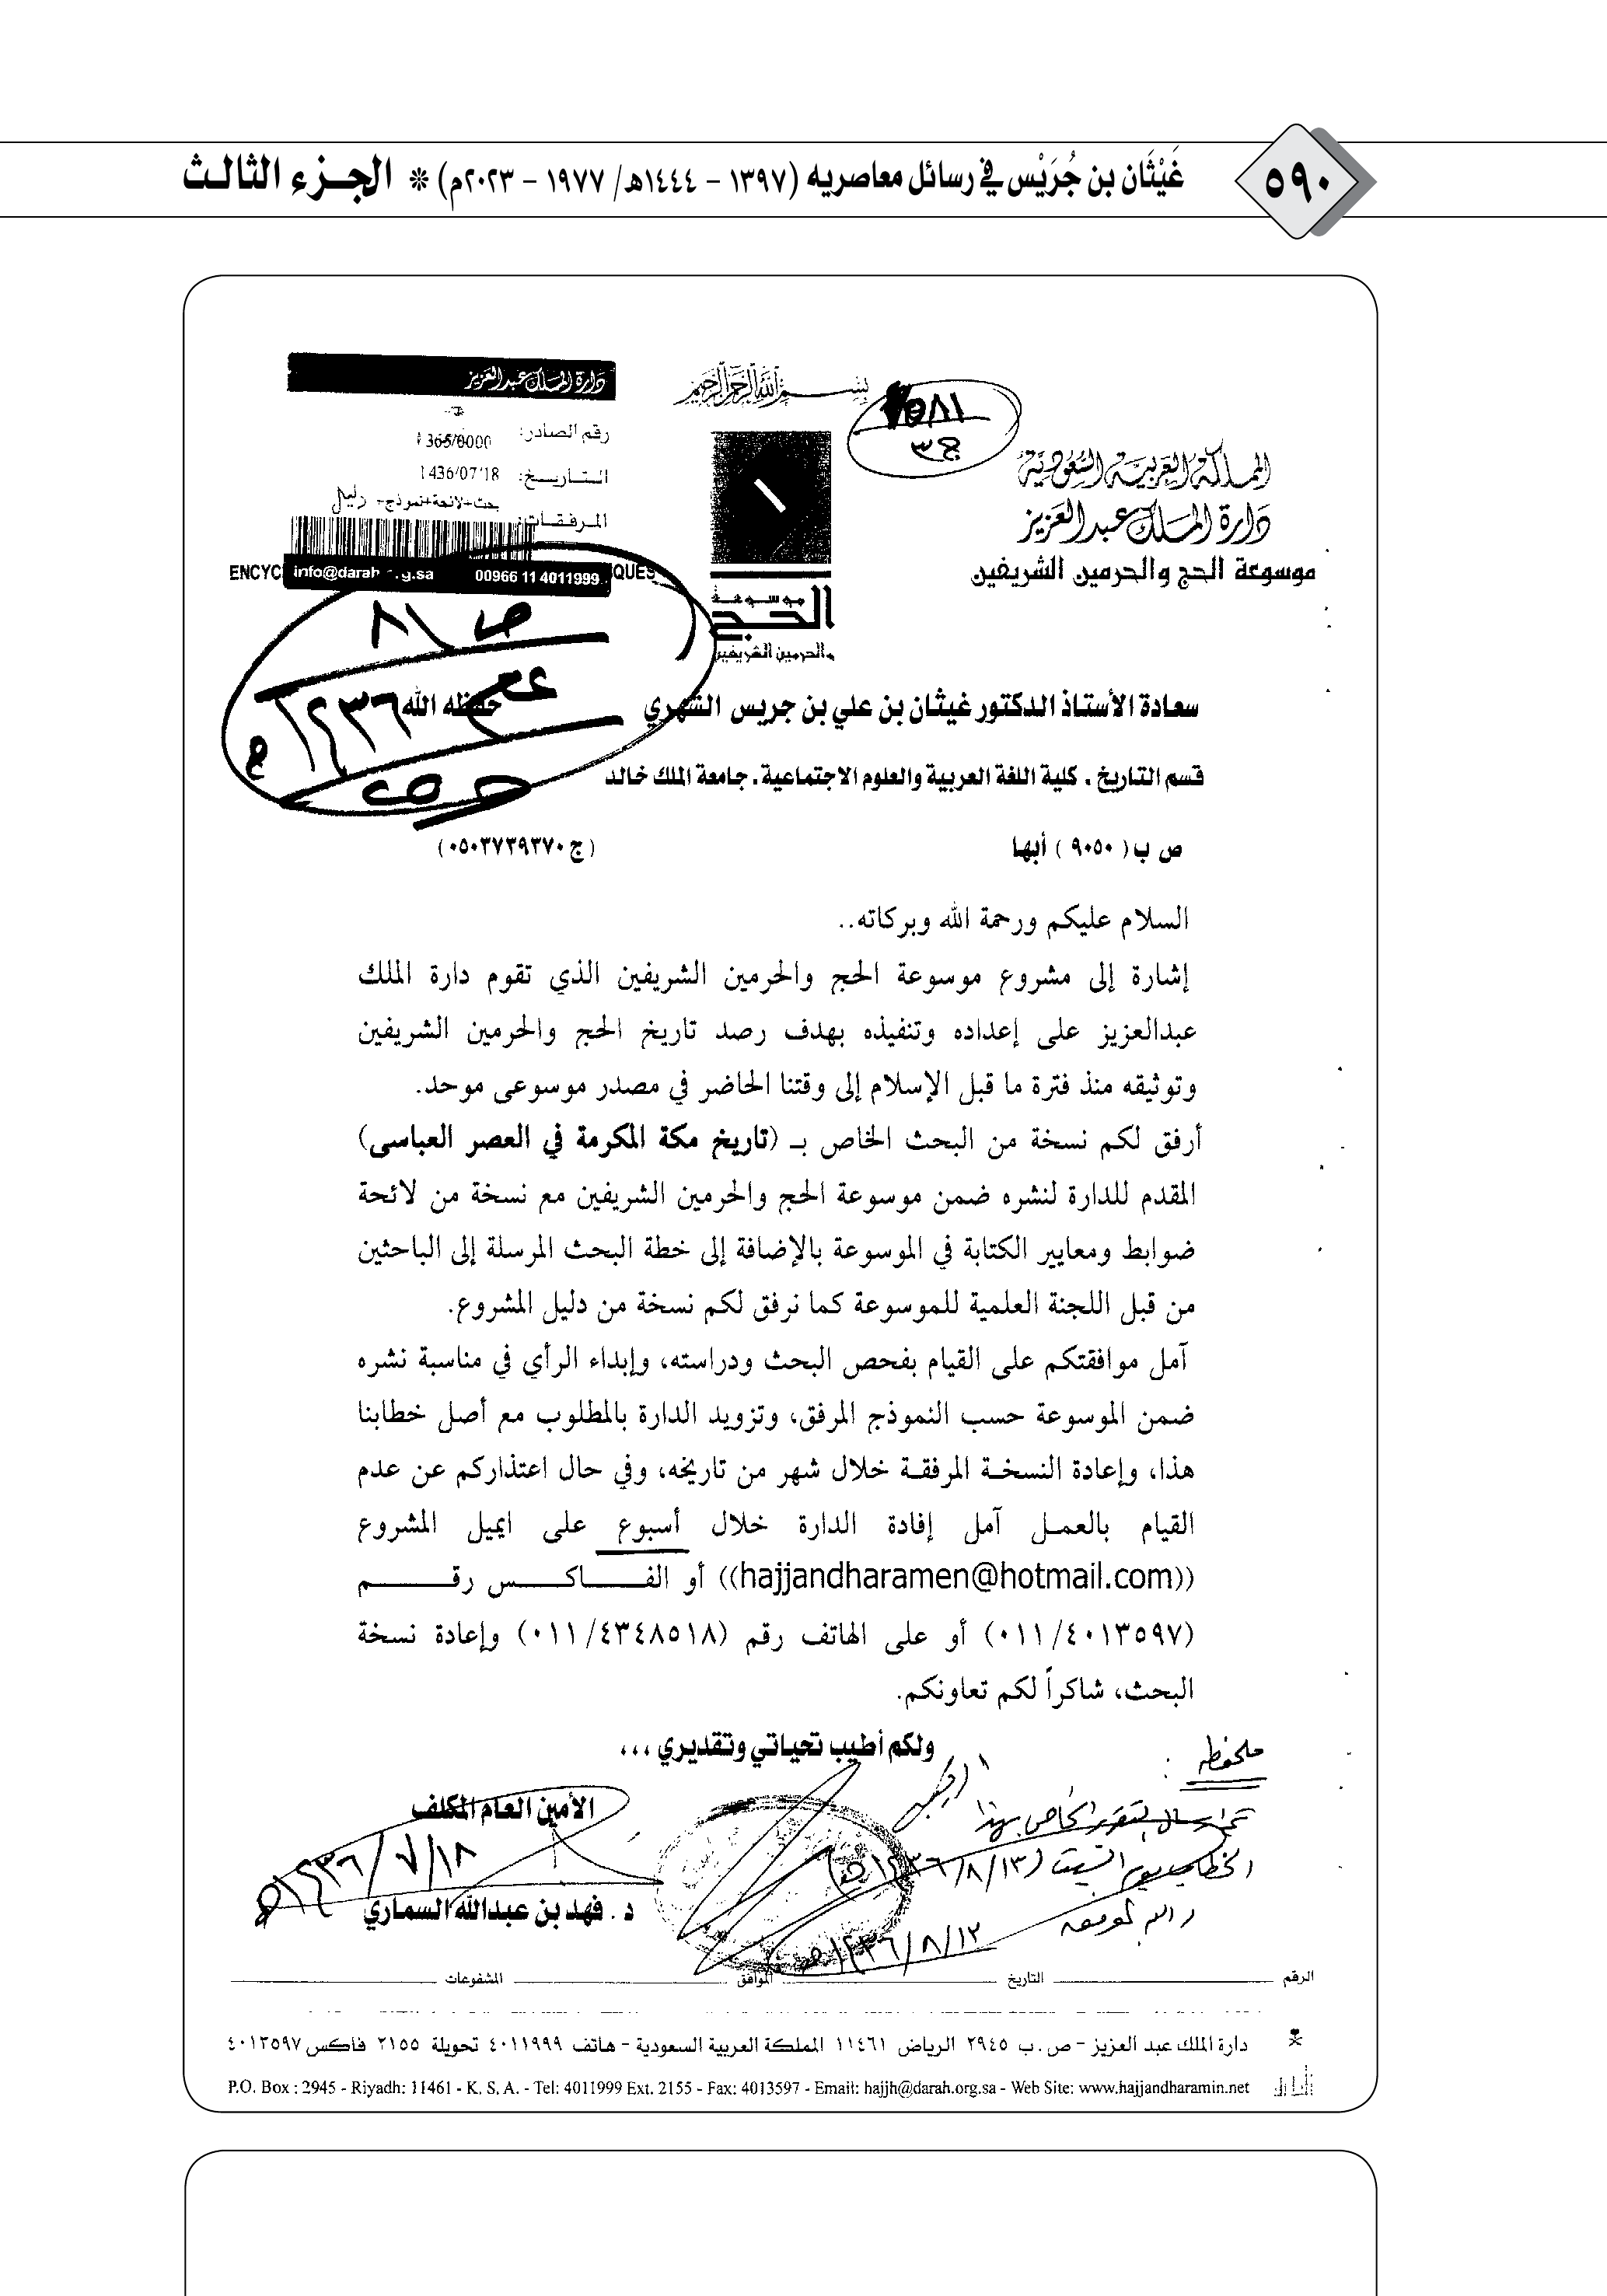 ٥٩٠
غَيْثَان بن جُرَيْس في رسائل معاصريه (١٣٩٧ - ١٤٤٤هـ/ ١٩٧٧ - ٢٠٢٣م) * الجزء الثالث
بسم الله الرحمن الرحيم
المملكة العربية السعودية
دارة الملك عبدالعزيز
موسوعة الحج والحرمين الشريفين
موسوعة
الحج
والحرمين الشريفين
دارة الملك عبدالعزيز
رقم الصادر:
التاريخ: 1436/07/18
المرفقات: بحث+لائحة+نموذج+
info@darah.org.sa 00966 11 4011999
سعادة الأستاذ الدكتور غيثان بن علي بن جريس الشهري حفظه الله
قسم التاريخ . كلية اللغة العربية والعلوم الاجتماعية . جامعة الملك خالد
ص ب ( ٩٠٥٠ ) أبها (ج ٠٥٠٣٧٣٩٣٧٠)
السلام عليكم ورحمة الله وبركاته..
إشارة إلى مشروع موسوعة الحج والحرمين الشريفين الذي تقوم دارة الملك
عبدالعزيز على إعداده وتنفيذه بهدف رصد تاريخ الحج والحرمين الشريفين
وتوثيقه منذ فترة ما قبل الإسلام إلى وقتنا الحاضر في مصدر موسوعى موحد.
أرفق لكم نسخة من البحث الخاص بـ (تاريخ مكة المكرمة في العصر العباسى)
المقدم للدارة لنشره ضمن موسوعة الحج والحرمين الشريفين مع نسخة من لائحة
ضوابط ومعايير الكتابة في الموسوعة بالإضافة إلى خطة البحث المرسلة إلى الباحثين
من قبل اللجنة العلمية للموسوعة كما نرفق لكم نسخة من دليل المشروع.
آمل موافقتكم على القيام بفحص البحث ودراسته، وإبداء الرأي في مناسبة نشره
ضمن الموسوعة حسب النموذج المرفق، وتزويد الدارة بالمطلوب مع أصل خطابنا
هذا، وإعادة النسخة المرفقة خلال شهر من تاريخه، وفي حال اعتذاركم عن عدم
القيام بالعمل آمل إفادة الدارة خلال أسبوع على ايميل المشروع
((hajjandharamen@hotmail.com)) أو الفاكس رقم
(٠١١/٤٠١٣٥٩٧) أو على الهاتف رقم (٠١١/٤٣٤٨٥١٨) وإعادة نسخة
البحث، شاكراً لكم تعاونكم.
ولكم أطيب تحياتي وتقديري ،،،
الأمين العام المكلف
١٤٣٦/٧/١٨هـ
د . فهد بن عبدالله السماري
ملحوظة :
تم ارسال التقرير الخاص بهذا
الخطاب يوم السبت (١٤٣٦/٨/١٣هـ)
١٤٣٦/٨/١٣هـ
الرقم التاريخ الموافق المشفوعات
دارة الملك عبد العزيز - ص . ب ٢٩٤٥ الرياض ١١٤٦١ المملكة العربية السعودية - هاتف ٤٠١١٩٩٩ تحويلة ٢١٥٥ فاكس ٤٠١٣٥٩٧
P.O. Box : 2945 - Riyadh: 11461 - K. S. A. - Tel: 4011999 Ext. 2155 - Fax: 4013597 - Email: hajjh@darah.org.sa - Web Site: www.hajjandharamin.net